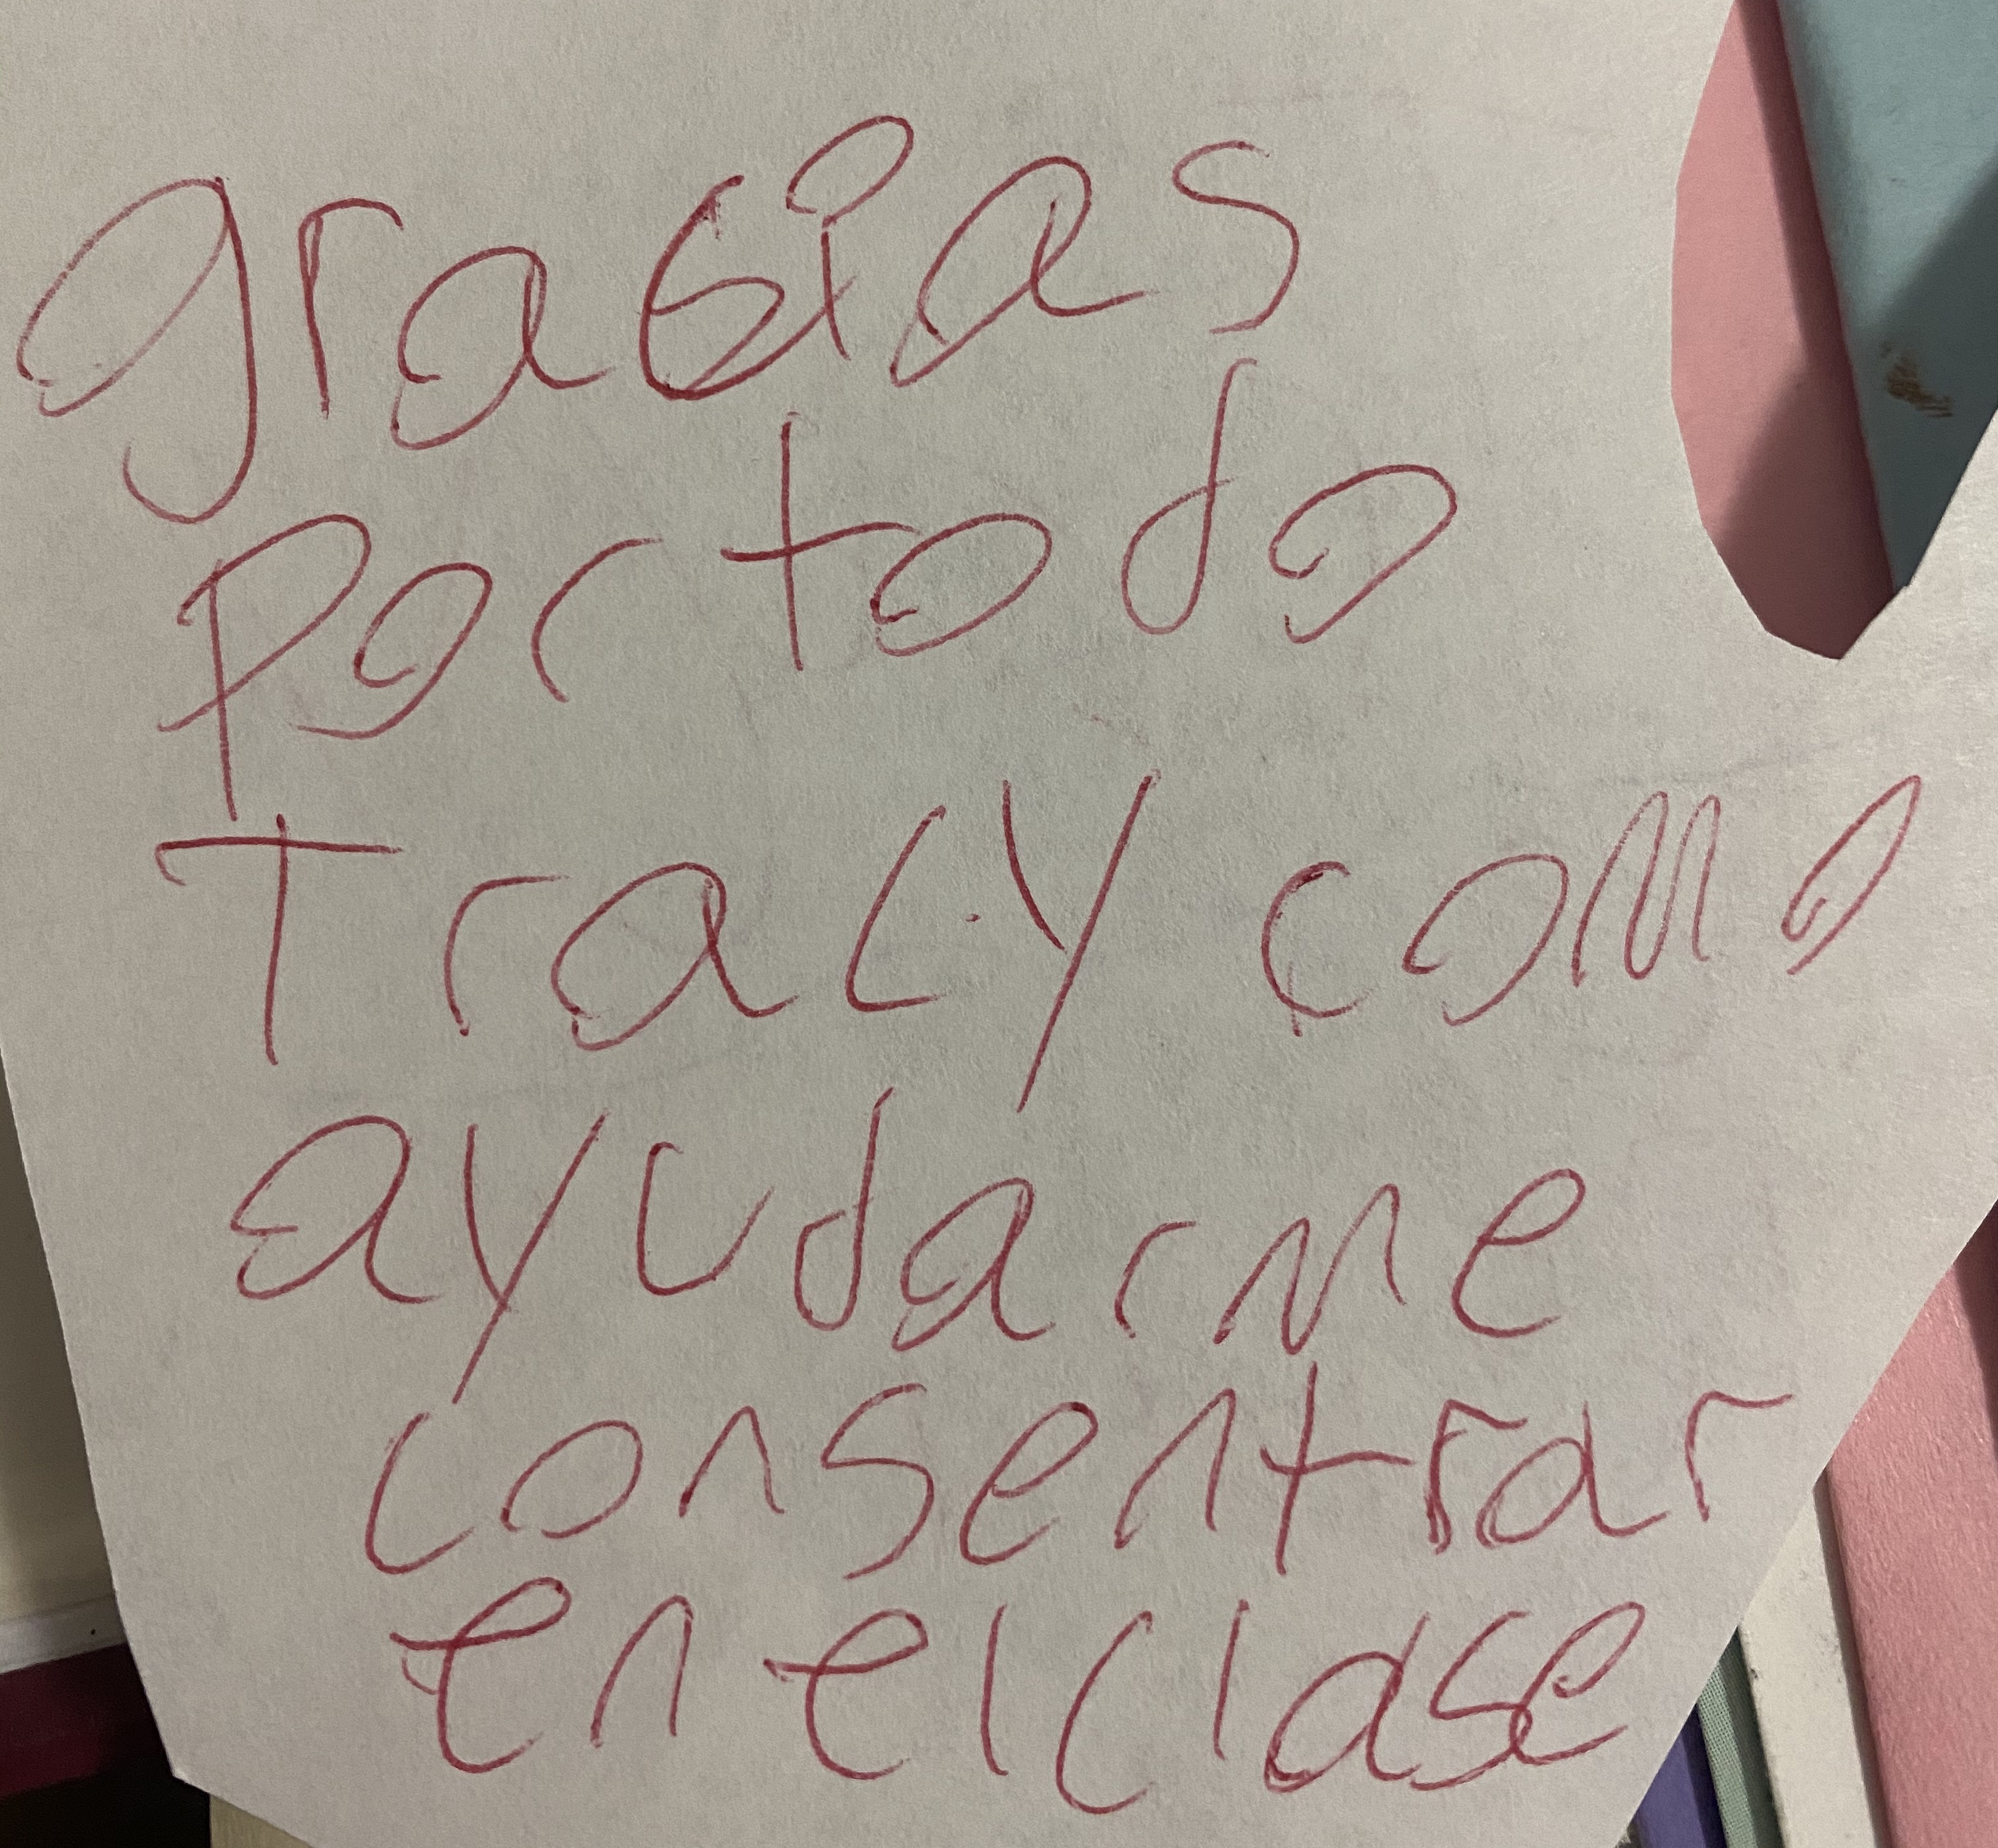 gracias
Por todo
Tracy como
ayudarme
consentrar
en el clase